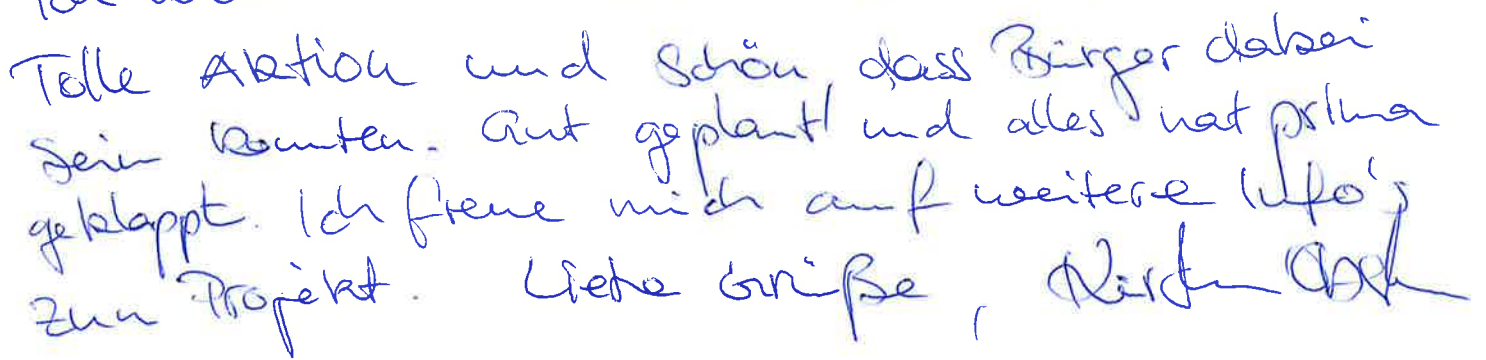 Tolle Aktion und schön, dass Bürger dabei
sein konnten. Gut geplant und alles hat prima
geklappt. Ich freue mich auf weitere Info's
zum Projekt. Liebe Grüße, Kirsten